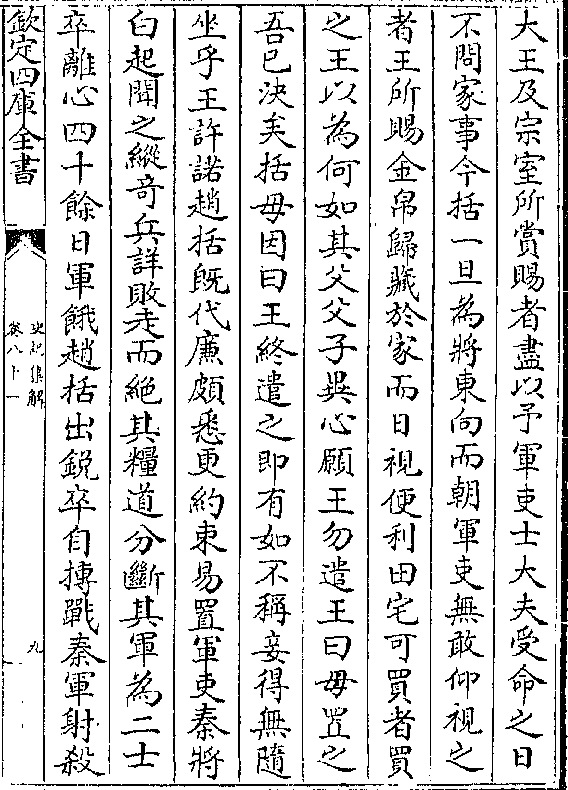 大王及宗室所賞賜者盡以予軍吏士大夫受命之日
不問家事今括一旦為將東向而朝軍吏無敢仰視之
者王所賜金帛歸藏於家而日視便利田宅可買者買
之王以為何如其父父子異心願王勿遣王曰母置之
吾已決矣括母因曰王終遣之即有如不稱妾得無隨
坐乎王許諾趙括既代廉頗悉更約束易置軍吏秦將
白起聞之縱奇兵詳敗走而絶其糧道分斷其軍為二士
卒離心四十餘日軍餓趙括出銳卒自搏戰秦軍射殺
欽定四庫全書
史記集解
卷八十一
九